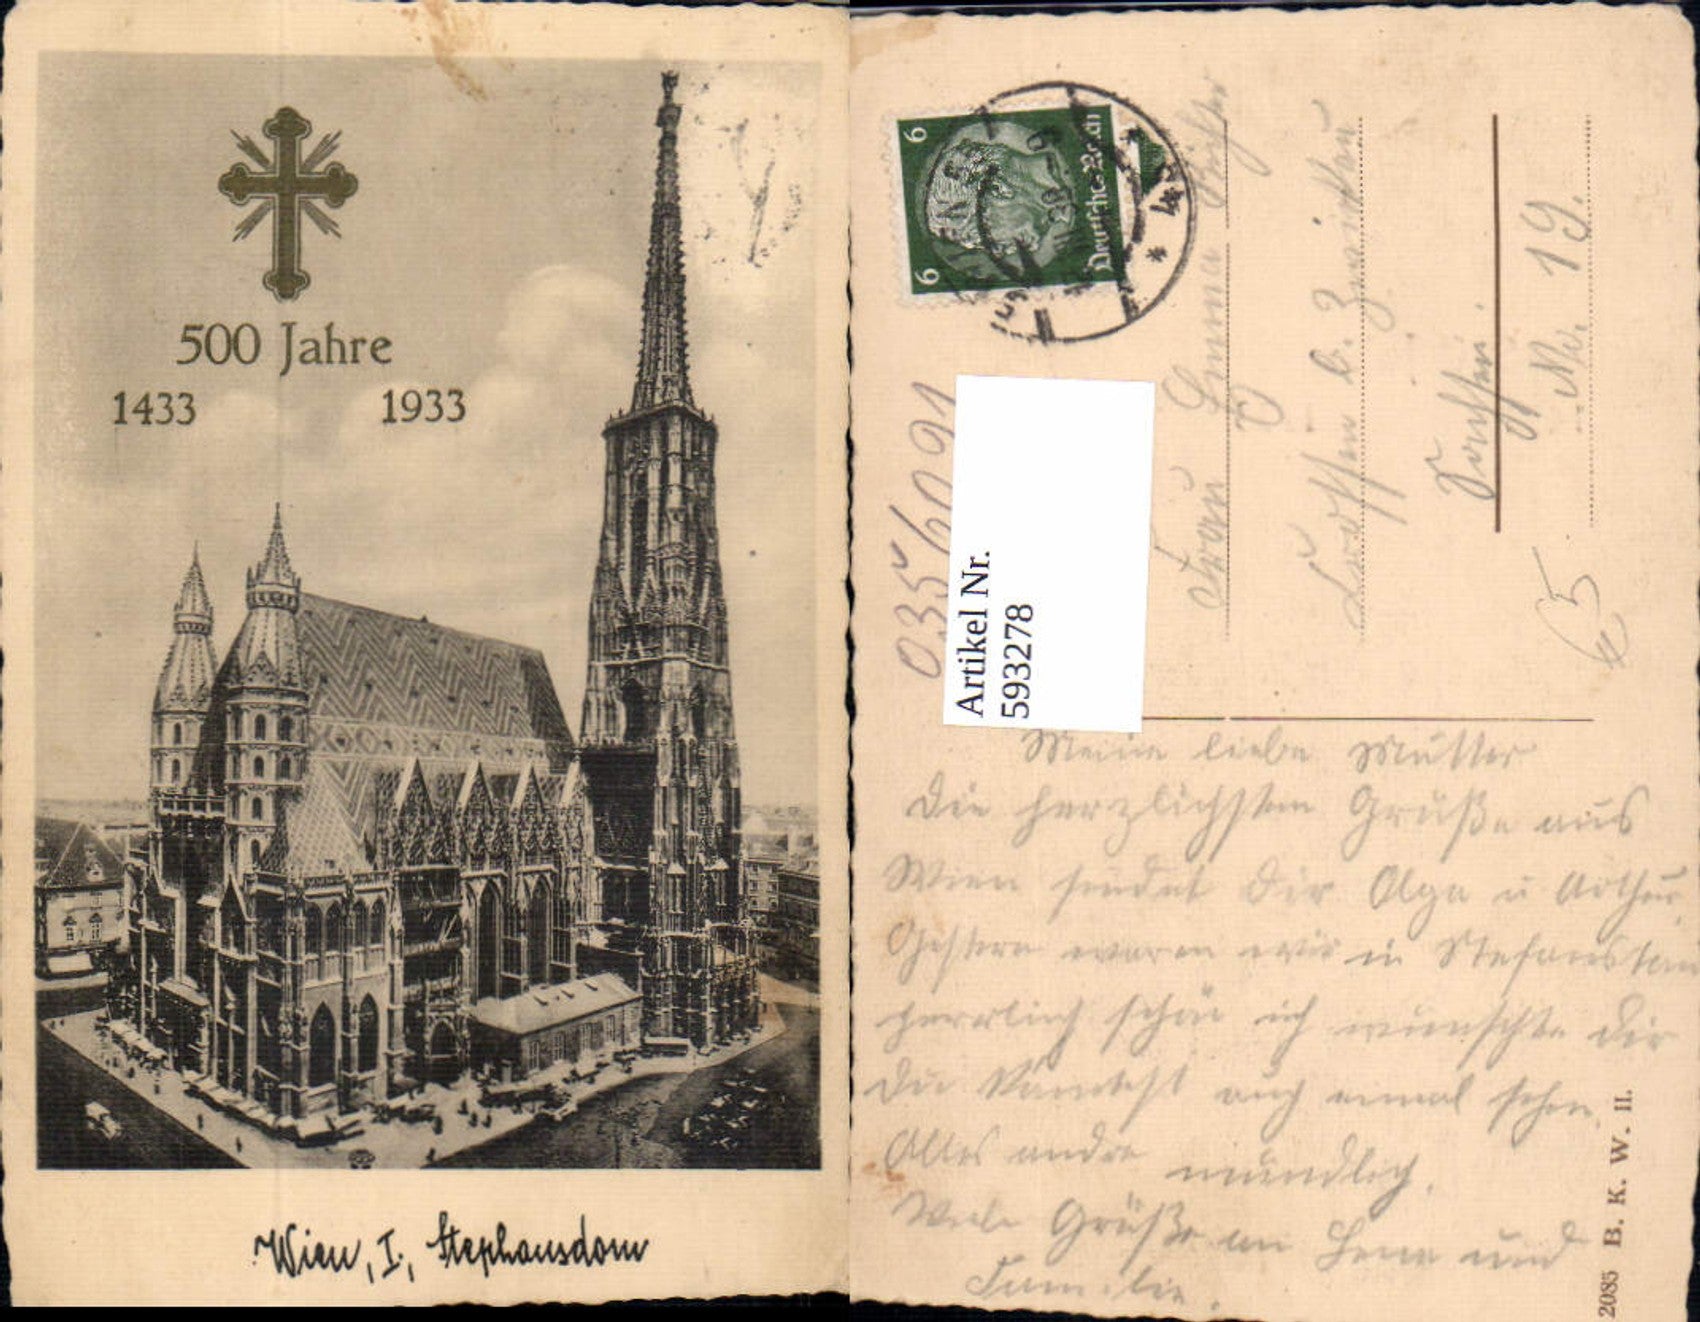 500 Jahre
1433 1933
Wien, I., Stephansdom
6 6
Deutsches Reich
0356091
Artikel Nr.
593278
Frau
b. Zwickau
Nr. 19.
€ 5
Meine liebe Mutter
Die herzlichsten Grüße aus
Wien sendet Dir Olga u Arthur.
Gestern waren wir in Stefansdom
herrlich schön ich wünschte Dir
Du könntest auch einmal sehen.
Alles andre mündlich.
Viele Grüße an und
Familie.
2085 B. K. W. II.